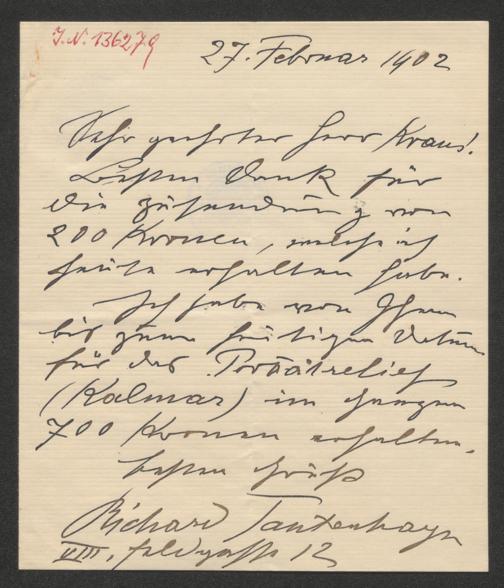 J.N. 136279
27. Februar 1902
Sehr geehrter Herr Kraus!
Besten Dank für
die Zusendung von
200 Kronen, welche ich
heute erhalten habe.
Ich habe von Ihnen
bis zum heutigen Datum
für das Porträtrelief
(Kalmar) im Ganzen
700 Kronen erhalten.
besten Gruß
Richard Tautenhayn
VIII, Feldgasse 12